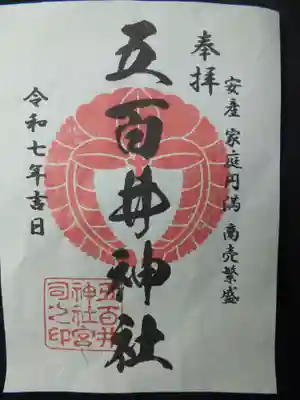 奉拝
安産 家庭円満 商売繁盛
五百井神社
令和七年吉日
五百井
神社宮
司之印